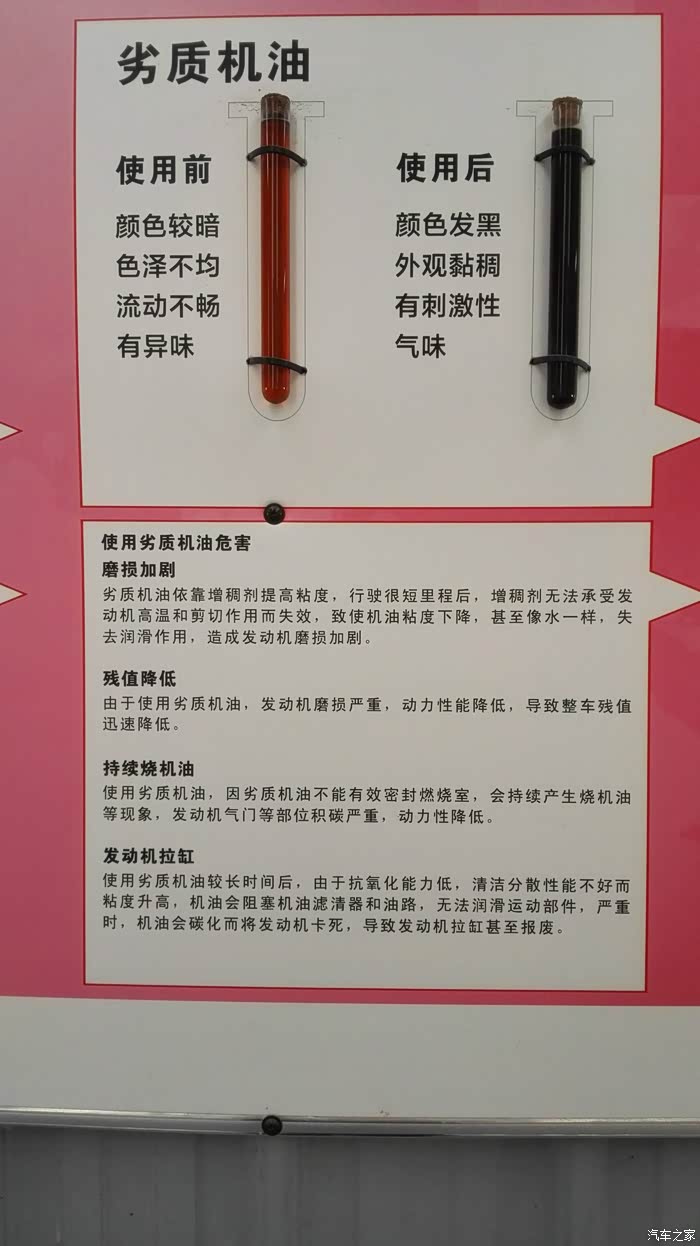 劣质机油
使用前
颜色较暗
色泽不均
流动不畅
有异味
使用后
颜色发黑
外观黏稠
有刺激性
气味
使用劣质机油危害
磨损加剧
劣质机油依靠增稠剂提高粘度，行驶很短里程后，增稠剂无法承受发
动机高温和剪切作用而失效，致使机油粘度下降，甚至像水一样，失
去润滑作用，造成发动机磨损加剧。
残值降低
由于使用劣质机油，发动机磨损严重，动力性能降低，导致整车残值
迅速降低。
持续烧机油
使用劣质机油，因劣质机油不能有效密封燃烧室，会持续产生烧机油
等现象，发动机气门等部位积碳严重，动力性降低。
发动机拉缸
使用劣质机油较长时间后，由于抗氧化能力低，清洁分散性能不好而
粘度升高，机油会阻塞机油滤清器和油路，无法润滑运动部件，严重
时，机油会碳化而将发动机卡死，导致发动机拉缸甚至报废。
汽车之家